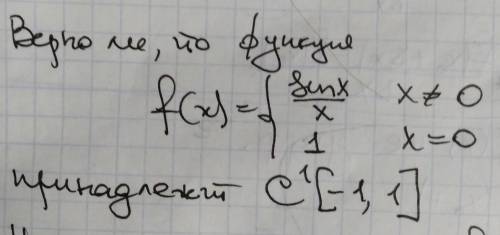 Верно ли, что функция
f(x) = { sinx/x x ≠ 0
1 x = 0
принадлежит C¹[-1, 1]